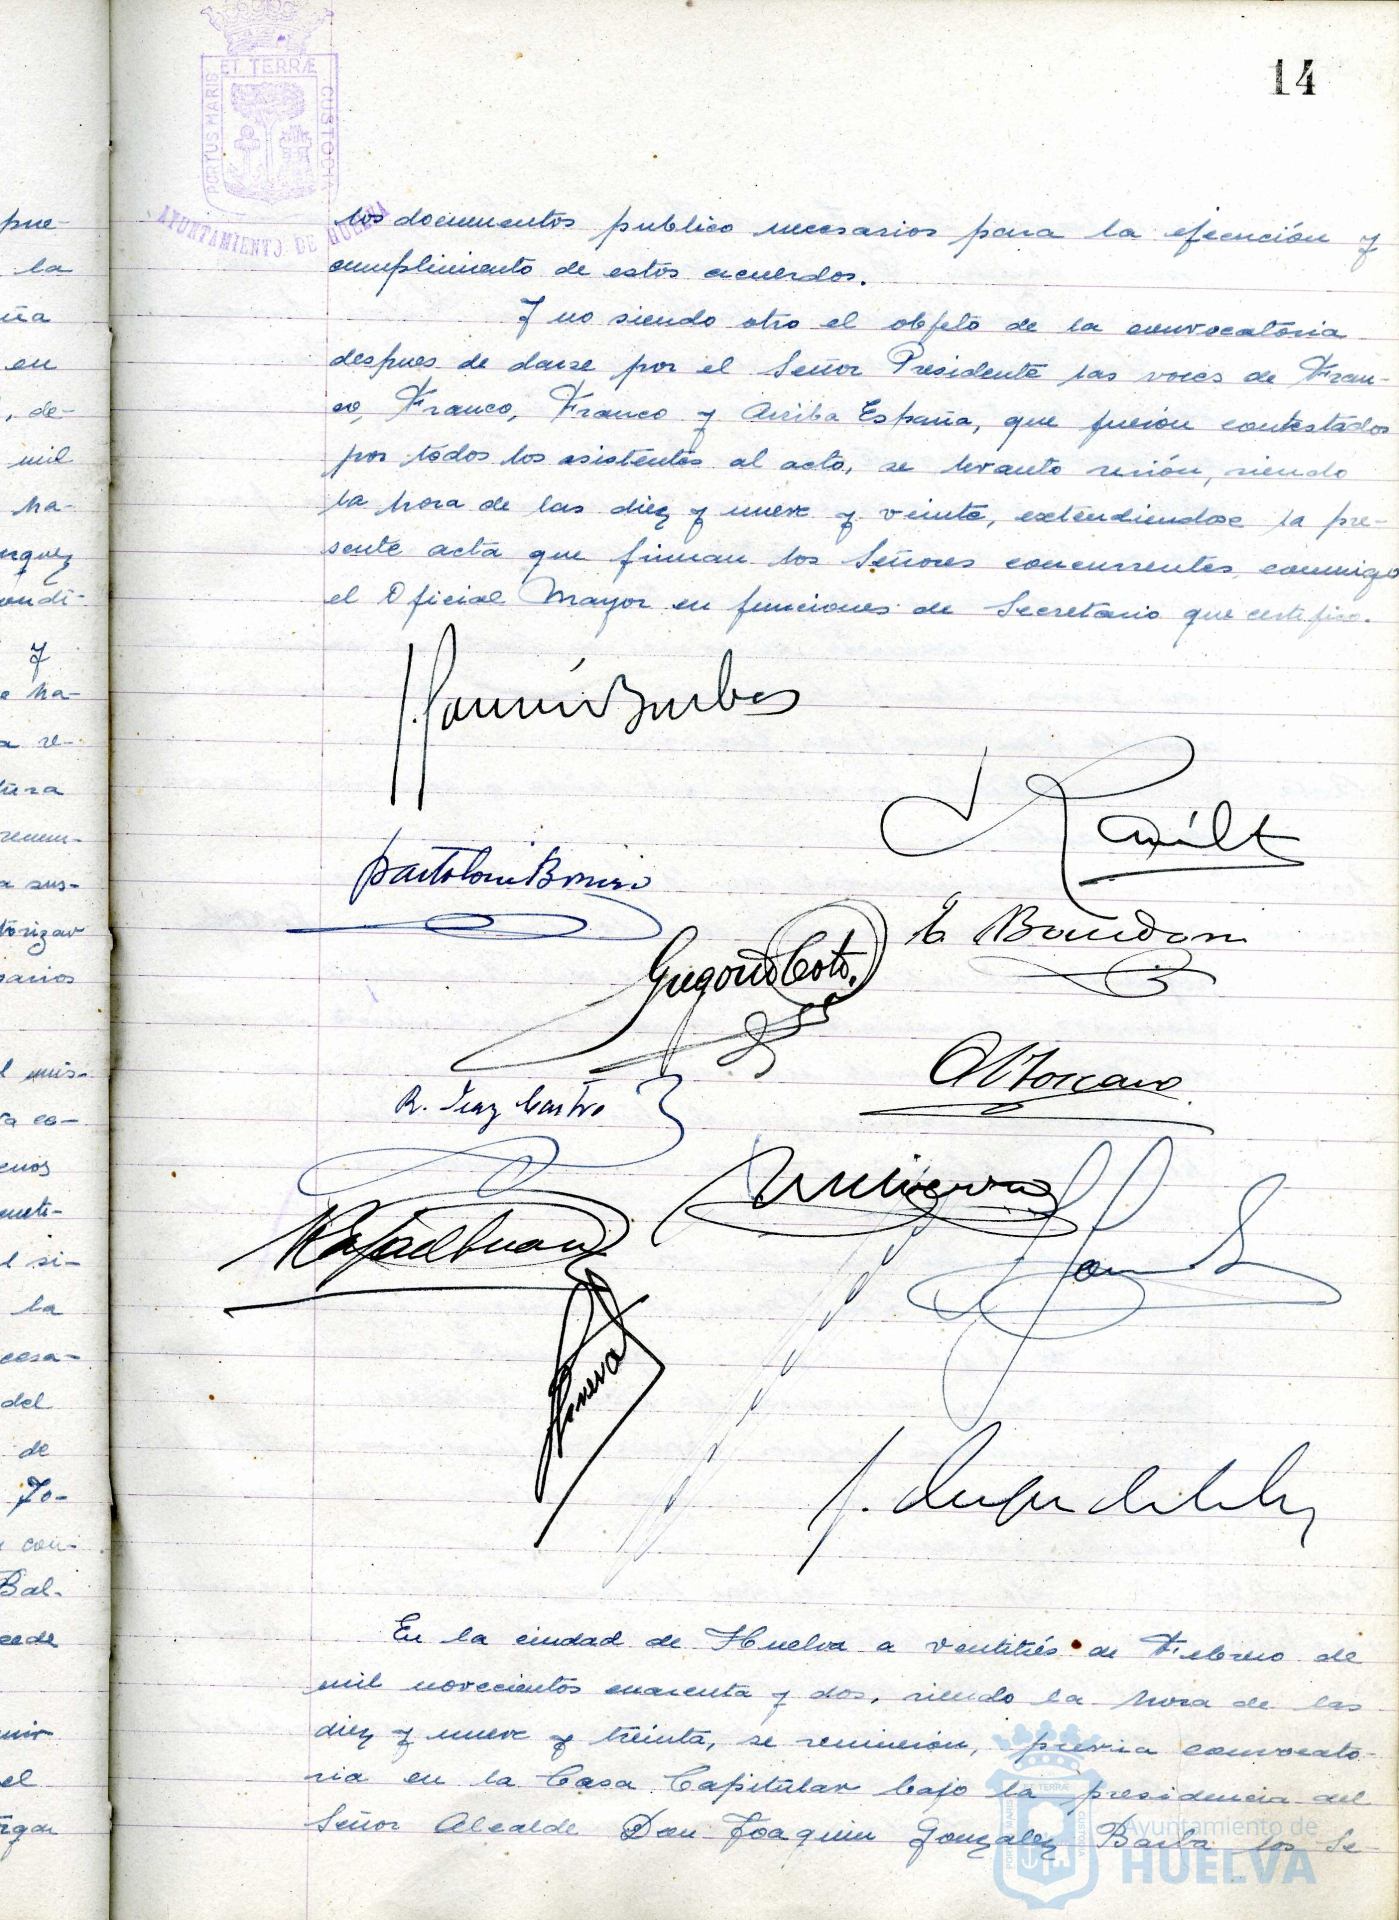 14
ET TERRÆ
PORTUS MARIS
CUSTODIA
AYUNTAMIENTO DE HUELVA
pue-
la
en
, de-
mil
ha-
y
e ha-
a re-
a sus-
torizar
sarios
l mis-
l si-
la
cesa-
del
de
Jo-
con-
Bal-
cede
el
los documentos publico necesarios para la ejecución y
cumplimiento de estos acuerdos.
Y no siendo otro el objeto de la convocatoria
despues de darse por el Señor Presidente las voces de Fran-
co, Franco, Franco y Arriba España, que fueron contestados
por todos los asistentes al acto, se levanto sesión, siendo
la hora de las diez y nueve y veinte, extendiendose la pre-
sente acta que firman los Señores concurrentes, conmigo
el Oficial Mayor en funciones de Secretario que certifico.
Gregorio Coto.
R. Diaz Castro
En la ciudad de Huelva a ventitrés de Febrero de
mil novecientos cuarenta y dos, siendo la hora de las
diez y nueve y treinta, se reunieron, previa convocato-
ria en la Casa Capitular bajo la presidencia del
Señor Alcalde Don Joaquin Gonzalez Barba los Se-
Ayuntamiento de
HUELVA